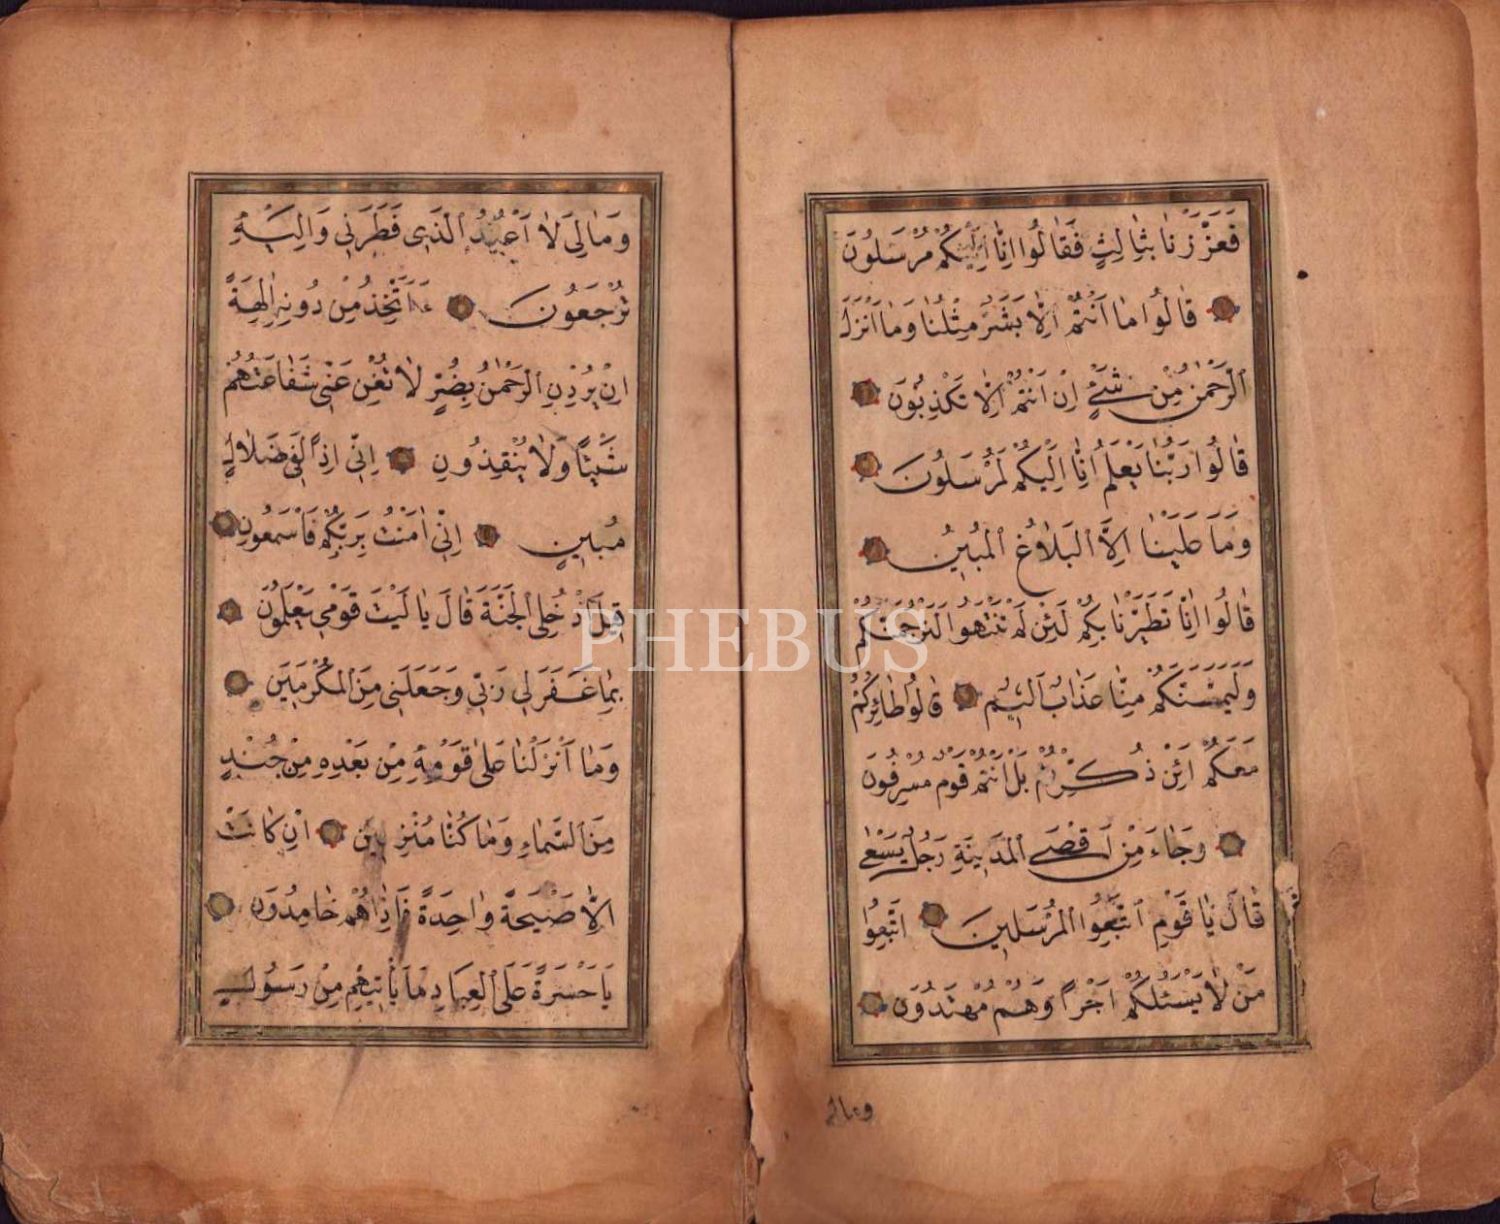 فَعَزَّزْنَا بِثَالِثٍ فَقَالُوا اِنَّا اِلَيْكُمْ مُرْسَلُونَ
قَالُوا مَا اَنْتُمْ اِلَّا بَشَرٌ مِثْلُنَا وَمَا اَنْزَلَ
الرَّحْمٰنُ مِنْ شَيْءٍ اِنْ اَنْتُمْ اِلَّا تَكْذِبُونَ
قَالُوا رَبُّنَا يَعْلَمُ اِنَّا اِلَيْكُمْ لَمُرْسَلُونَ
وَمَا عَلَيْنَا اِلَّا الْبَلَاغُ الْمُبِينُ
قَالُوا اِنَّا تَطَيَّرْنَا بِكُمْ لَئِنْ لَمْ تَنْتَهُوا لَنَرْجُمَنَّكُمْ
وَلَيَمَسَّنَّكُمْ مِنَّا عَذَابٌ اَلِيمٌ قَالُوا طَائِرُكُمْ
مَعَكُمْ اَئِنْ ذُكِّرْتُمْ بَلْ اَنْتُمْ قَوْمٌ مُسْرِفُونَ
وَجَاءَ مِنْ اَقْصَى الْمَدِينَةِ رَجُلٌ يَسْعٰى
قَالَ يَا قَوْمِ اتَّبِعُوا الْمُرْسَلِينَ اتَّبِعُوا
مَنْ لَا يَسْـَٔلُكُمْ اَجْرًا وَهُمْ مُهْتَدُونَ
ومالي
وَمَا لِيَ لَا اَعْبُدُ الَّذِي فَطَرَنِي وَاِلَيْهِ
تُرْجَعُونَ ءَاَتَّخِذُ مِنْ دُونِهِ اٰلِهَةً
اِنْ يُرِدْنِ الرَّحْمٰنُ بِضُرٍّ لَا تُغْنِ عَنِّي شَفَاعَتُهُمْ
شَيْـًٔا وَلَا يُنْقِذُونِ اِنِّي اِذًا لَفِي ضَلَالٍ
مُبِينٍ اِنِّي اٰمَنْتُ بِرَبِّكُمْ فَاسْمَعُونِ
قِيلَ ادْخُلِ الْجَنَّةَ قَالَ يَا لَيْتَ قَوْمِي يَعْلَمُونَ
بِمَا غَفَرَ لِي رَبِّي وَجَعَلَنِي مِنَ الْمُكْرَمِينَ
وَمَا اَنْزَلْنَا عَلٰى قَوْمِهِ مِنْ بَعْدِهِ مِنْ جُنْدٍ
مِنَ السَّمَاءِ وَمَا كُنَّا مُنْزِلِينَ اِنْ كَانَتْ
اِلَّا صَيْحَةً وَاحِدَةً فَاِذَا هُمْ خَامِدُونَ
يَا حَسْرَةً عَلَى الْعِبَادِ مَا يَأْتِيهِمْ مِنْ رَسُولٍ
PHEBUS